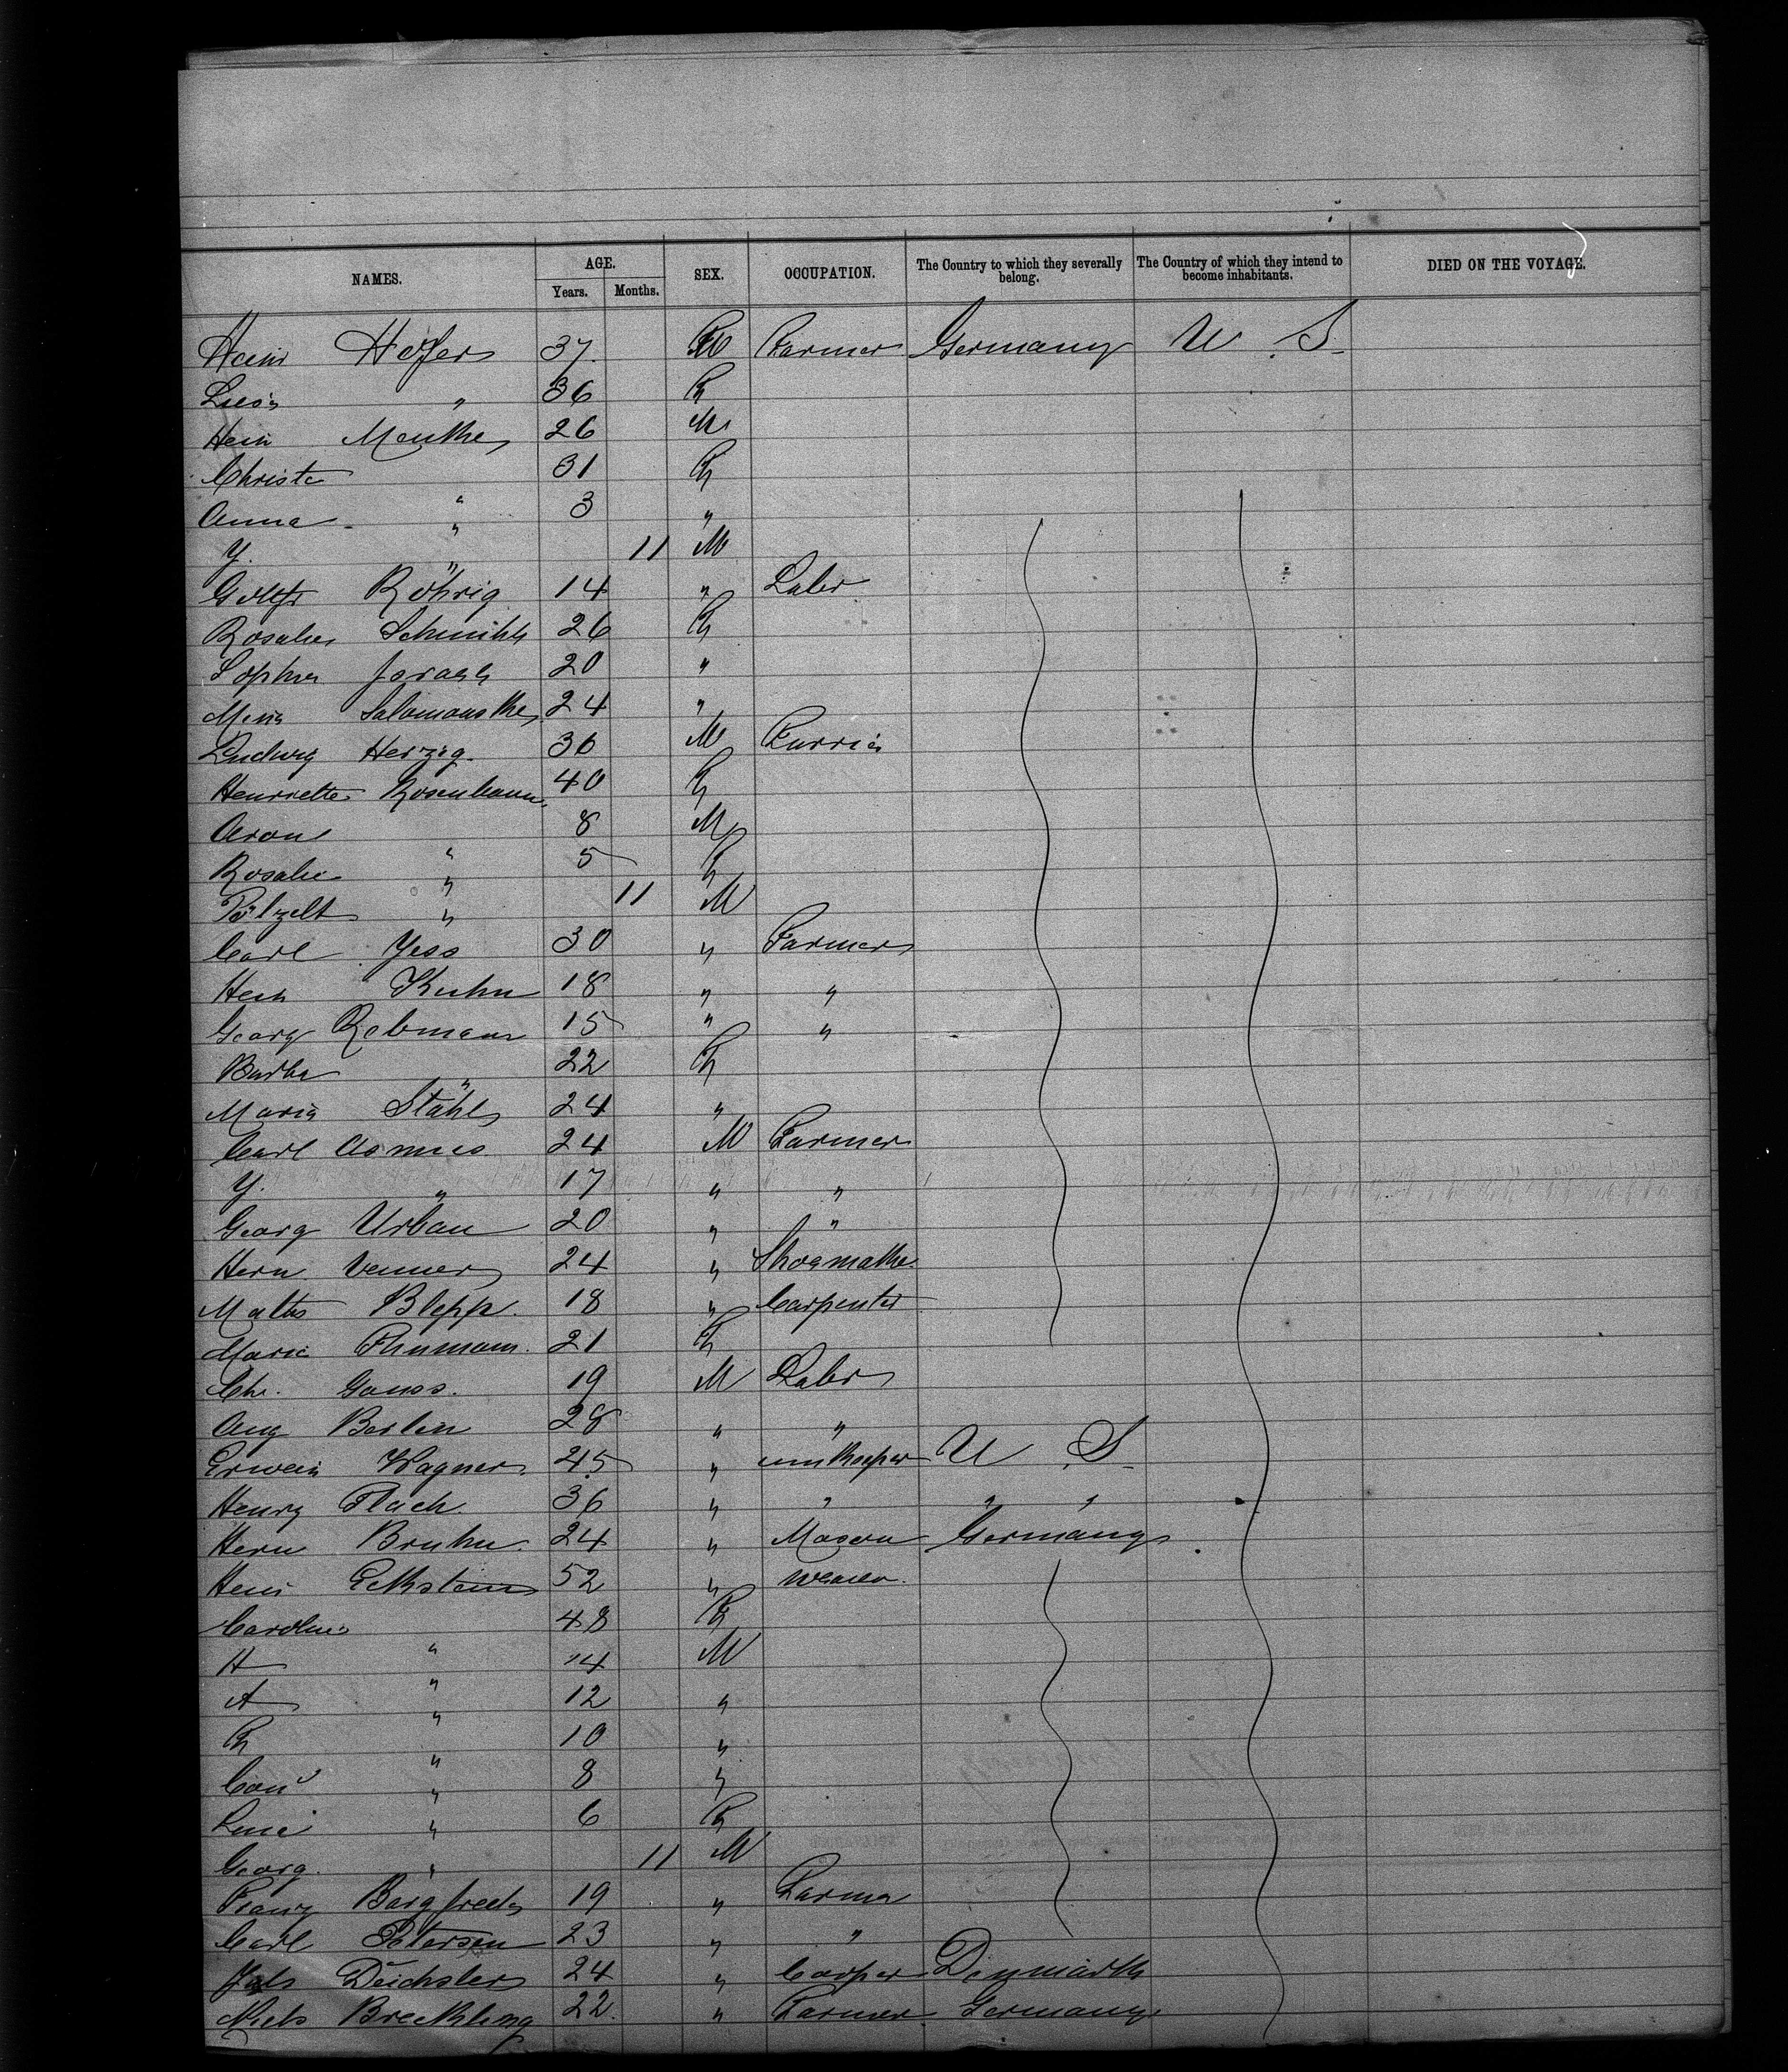 NAMES. AGE. SEX. OCCUPATION. The Country to which they severally belong. The Country of which they intend to become inhabitants. DIED ON THE VOYAGE.
Years. Months.
Heinr Höfer 37 M Farmer Germany U. S.
" 36 F
Hein Menthe 26 M
Christe " 31 F
Anna " 3 "
Y. " 11 M
Gottfr Röhrig 14 " Labr
Rosalie Schmihl 26 F
Sophie 20 "
24 "
Ludwig Herzig. 36 M Furrier
Henriette Rosenbaum 40 F
Aron " 8 M
Rosalie " 5 F
" 11 M
Carl Jess 30 " Farmer
Hein Kuhn 18 " "
Georg Rebmann 15 " "
Barba " 22 F
Maria Stähl 24 "
Carl Asmus 24 M Farmer
Y. " 17 " "
Georg Urban 20 " "
Herm Venner 24 " Shoemaker
Maths Blepp. 18 " Carpenter
Marie 21 F
Chr. Gauss. 19 M Labr
Aug Berlin 28 " "
Erwein Wagner 45 " innkeeper U. S.
Henry Flach. 36 " " " "
Herm Bruhn. 24 " Mason Germany
Heinr Eckstein 52 " weaver.
Caroline " 48 F
H " 14 M
A " 12 "
F " 10 "
Con " 8 "
Line " 6 F
Georg. " 11 M
Franz Bargfrede 19 " Farmer
Carl Petersen 23 " "
Deichsler 24 " Carper Denmark
Niels Breckling 22 " Farmer Germany